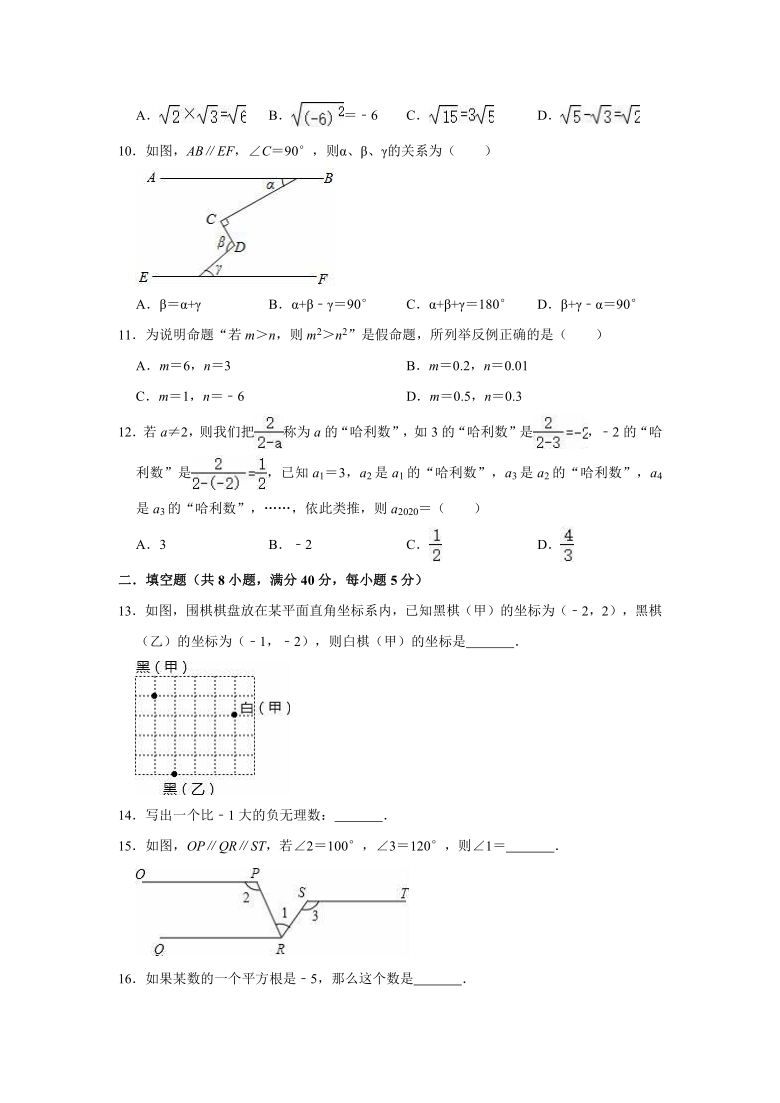 A．√2×√3=√6 B．√(-6)²=﹣6 C．√15=3√5 D．√5-√3=√2
10．如图，AB∥EF，∠C＝90°，则α、β、γ的关系为（ ）
A B
α
C
β D
γ
E F
A．β＝α+γ B．α+β﹣γ＝90° C．α+β+γ＝180° D．β+γ﹣α＝90°
11．为说明命题“若 m＞n，则 m²＞n²”是假命题，所列举反例正确的是（ ）
A．m＝6，n＝3 B．m＝0.2，n＝0.01
C．m＝1，n＝﹣6 D．m＝0.5，n＝0.3
12．若 a≠2，则我们把2/(2-a)称为 a 的“哈利数”，如 3 的“哈利数”是2/(2-3)=-2，﹣2 的“哈
利数”是2/(2-(-2))=1/2，已知 a₁＝3，a₂ 是 a₁ 的“哈利数”，a₃ 是 a₂ 的“哈利数”，a₄
是 a₃ 的“哈利数”，……，依此类推，则 a₂₀₂₀＝（ ）
A．3 B．﹣2 C．1/2 D．4/3
二．填空题（共 8 小题，满分 40 分，每小题 5 分）
13．如图，围棋棋盘放在某平面直角坐标系内，已知黑棋（甲）的坐标为（﹣2，2），黑棋
（乙）的坐标为（﹣1，﹣2），则白棋（甲）的坐标是 ．
黑（甲）
白（甲）
黑（乙）
14．写出一个比﹣1 大的负无理数： ．
15．如图，OP∥QR∥ST，若∠2＝100°，∠3＝120°，则∠1＝ ．
O P
2 S T
1 3
Q R
16．如果某数的一个平方根是﹣5，那么这个数是 ．